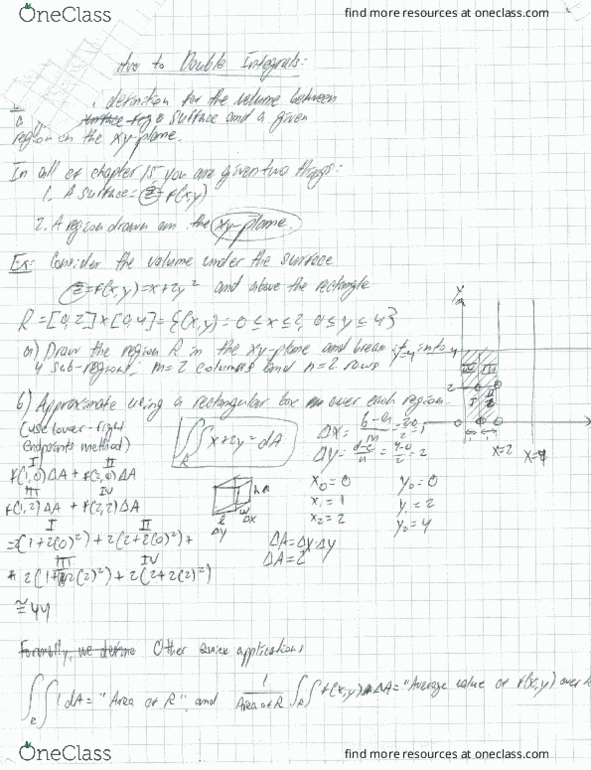 OneClass
find more resources at oneclass.com
to Double Integrals:
definition for the volume between
a surface and a given
region on the xy-plane.
In all of chapter 15, you are given two things:
1. A surface = z = f(x,y)
2. A region drawn on the xy-plane.
Ex: Consider the volume under the surface
z = f(x,y) = x+2y² and above the rectangle
R = [0,2]×[0,4] = {(x,y) = 0≤x≤2, 0≤y≤4}
a) Draw the region R in the xy-plane and break it into
4 sub-regions. m=2 columns and n=2 rows
b) Approximate using a rectangular box over each region.
(use lower-right
endpoints method)
∬ x+2y² dA
R
Δx = b-a/m = 2-0/2 = 1
Δy = d-c/n = 4-0/2 = 2
I II
f(1,0)ΔA + f(2,0)ΔA
III IV
f(1,2)ΔA + f(2,2)ΔA
h
l w
Δy Δx
x₀=0 y₀=0
x₁=1 y₁=2
x₂=2 y₂=4
ΔA=ΔxΔy
ΔA=2
I II
=2(1+2(0)²)+2(2+2(0)²)+
III IV
+ 2(1+2(2)²)+2(2+2(2)²)
≅44
y
y=4
4
2
0
III IV
I II
1 1
x=2
x
Formally, we define Other applications
∬ 1 dA = "Area of R", and 1/Area of R ∬ f(x,y) dA = "Average value of f(x,y) over
R R
OneClass
find more resources at oneclass.com